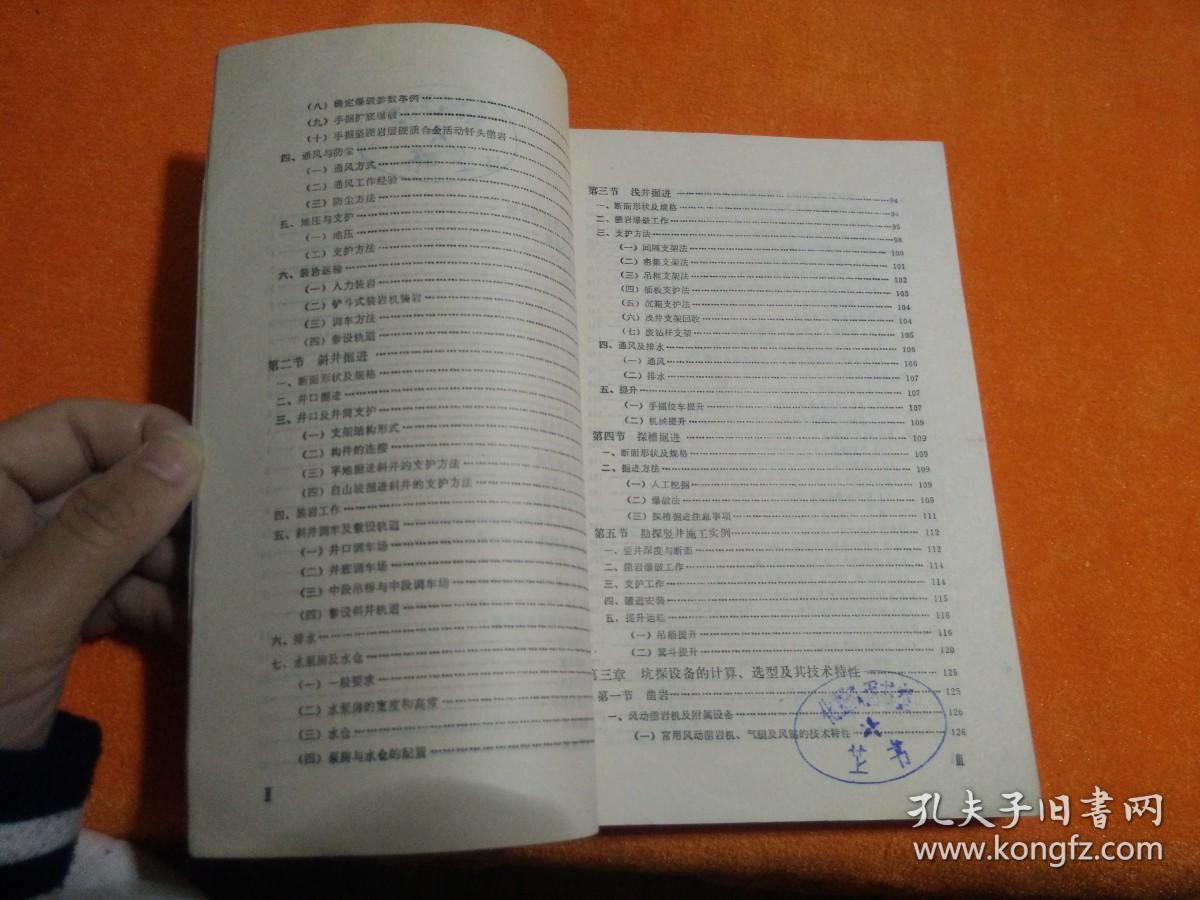 (八)确定爆破参数举例
(九)手掘扩底爆破
(十)手掘坚硬岩层硬质合金活动钎头凿岩
四、通风与防尘
(一)通风方式
(二)通风工作经验
(三)防尘方法
五、地压与支护
(一)地压
(二)支护方法
六、装岩运输
(一)人力装岩
(二)铲斗式装岩机装岩
(三)调车方法
(四)敷设轨道
第二节 斜井掘进
一、断面形状及规格
二、井口掘进
三、井口及井筒支护
(一)支架结构形式
(二)构件的连接
(三)平地掘进斜井的支护方法
(四)自山坡掘进斜井的支护方法
四、装岩工作
五、斜井调车及敷设轨道
(一)井口调车场
(二)井底调车场
(三)中段吊桥与中段调车场
(四)敷设斜井轨道
六、排水
七、水泵房及水仓
(一)一般要求
(二)水泵房的宽度和高度
(三)水仓
(四)泵房与水仓的配置
Ⅱ
第三节 浅井掘进 94
一、断面形状及规格 94
二、凿岩爆破工作 95
三、支护方法 98
(一)间隔支架法 100
(二)密集支架法 101
(三)吊框支架法 102
(四)插板支护法 103
(五)沉箱支护法 104
(六)浅井支架回收 104
(七)废钻杆支架 105
四、通风及排水 106
(一)通风 106
(二)排水 107
五、提升 107
(一)手摇绞车提升 107
(二)机械提升 108
第四节 探槽掘进 109
一、断面形状及规格 109
二、掘进方法 109
(一)人工挖掘 109
(二)爆破法 109
(三)探槽掘进注意事项 111
第五节 勘探竖井施工实例 112
一、竖井深度与断面 112
二、凿岩爆破工作 114
三、支护工作 114
四、罐道安装 115
五、提升运输 116
(一)吊桶提升 116
(二)箕斗提升 120
第三章 坑探设备的计算、选型及其技术特性 125
第一节 凿岩 125
一、风动凿岩机及附属设备 126
(一)常用风动凿岩机、气腿及风镐的技术特性 126
Ⅲ
孔夫子旧書网
www.kongfz.com